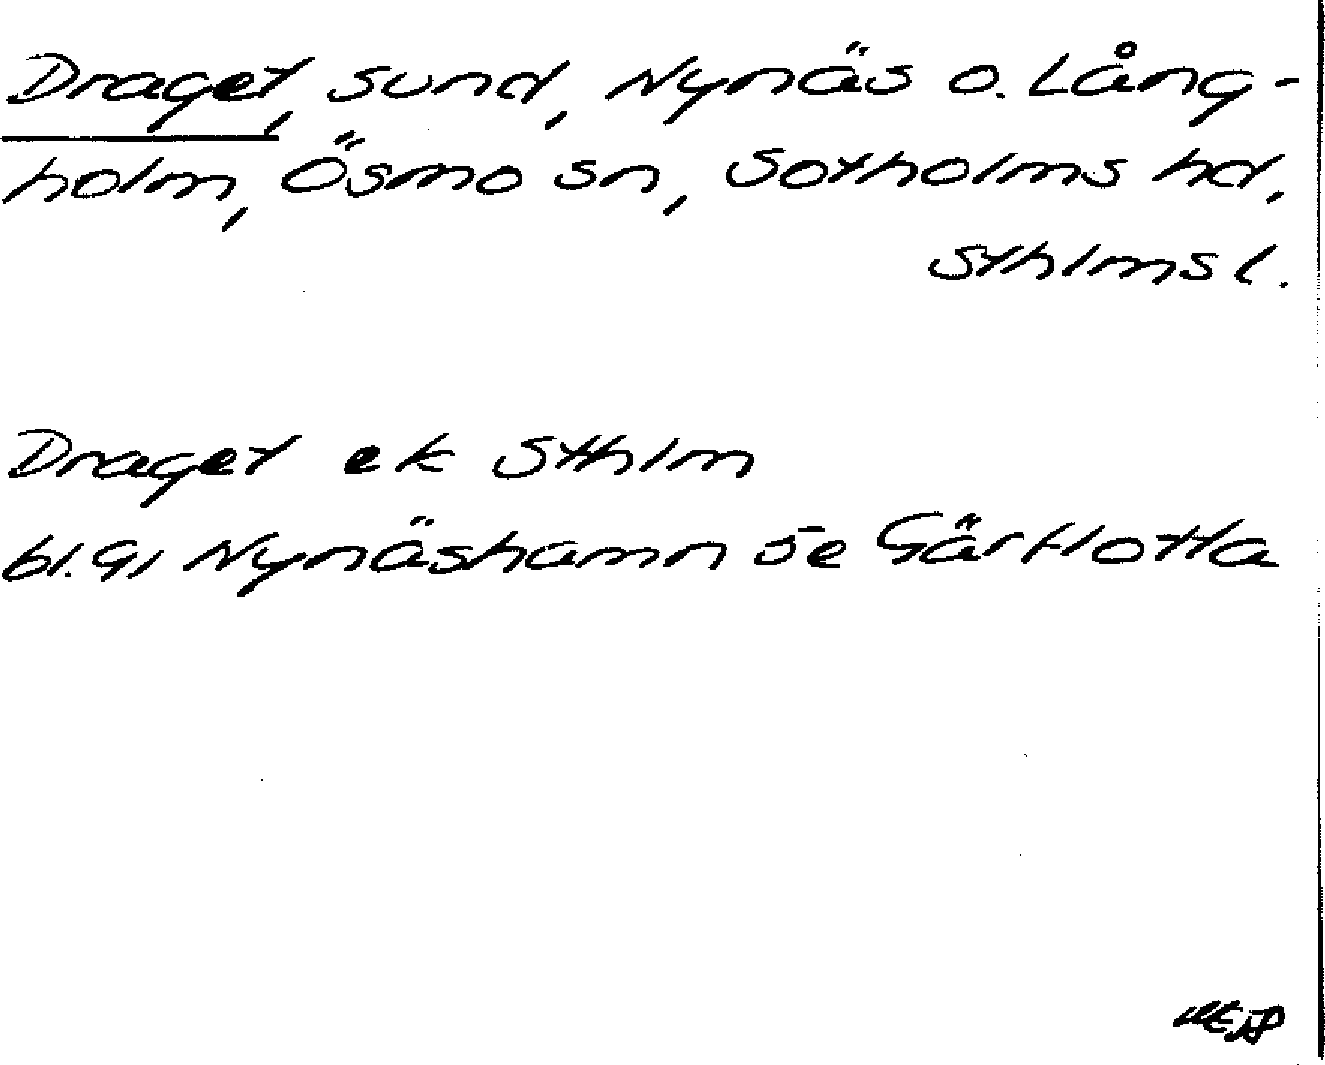 Draget, sund, Nynäs o. Lång-
holm, Ösmo sn, Sotholms hd,
Sthlms l.
Draget ek Sthlm
bl. 91 Nynäshamn se Gårflotta